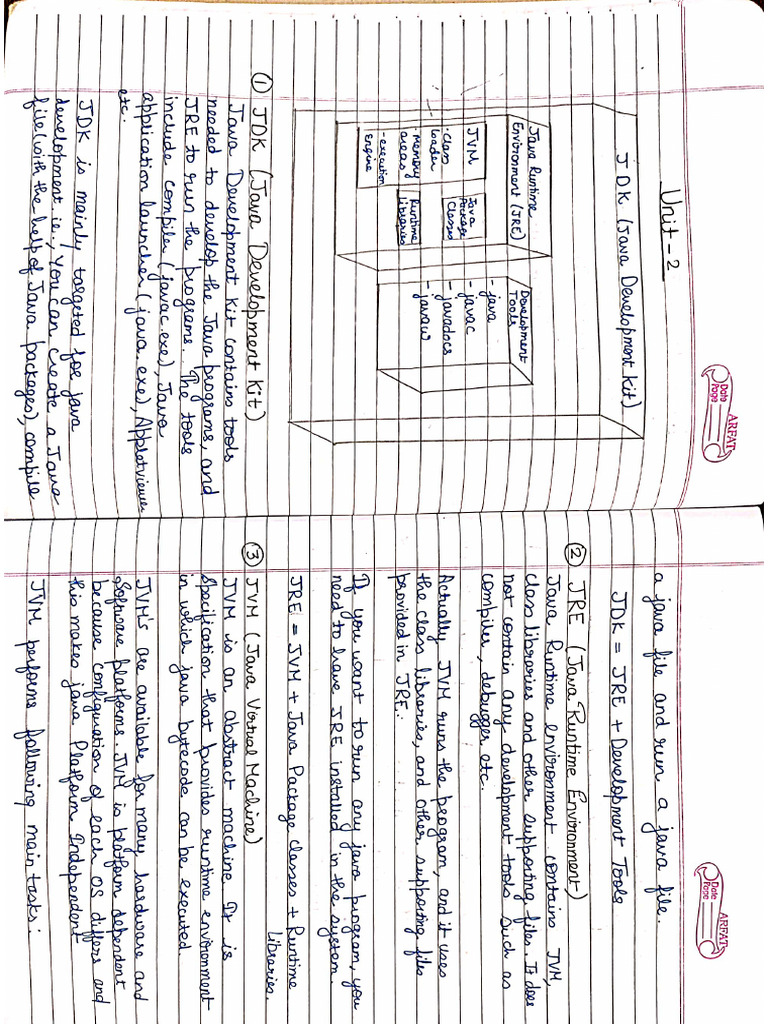 ARFAT
Date
Page
Unit-2
JDK (Java Development Kit)
Java Runtime
Environment (JRE)
JVM
·Class
loader
·Memory
areas
-execution
Engine
Java
Package
Classes
Runtime
libraries
Development
Tools
- java
- javac
- javadocs
- javaw
① JDK (Java Development Kit)
Java Development Kit contains tools
needed to develop the Java programs, and
JRE to run the programs. The tools
include compiler (javac.exe), Java
application launcher (java.exe), Appletviewer
etc.
JDK is mainly targeted for java
development. ie., you can create a Java
file (with the help of Java packages), compile
ARFAT
Date
Page
a java file and run a java file.
JDK = JRE + Development Tools
② JRE (Java Runtime Environment)
Java Runtime environment contains JVM,
class libraries and other supporting files. It does
not contain any development tools such as
compiler, debugger etc.
Actually JVM runs the program, and it uses
the class libraries, and other supporting files
provided in JRE.
If you want to run any java program, you
need to have JRE installed in the system.
JRE = JVM + Java Package Classes + Runtime
libraries.
③ JVM (Java Virtual Machine)
JVM is an abstract machine. It is
specification that provides runtime environment
in which java bytecode can be executed.
JVM's are available for many hardware and
Software platforms. JVM is platform dependent
because configuration of each OS differs and
this makes java Platform Independent
JVM performs following main tasks: